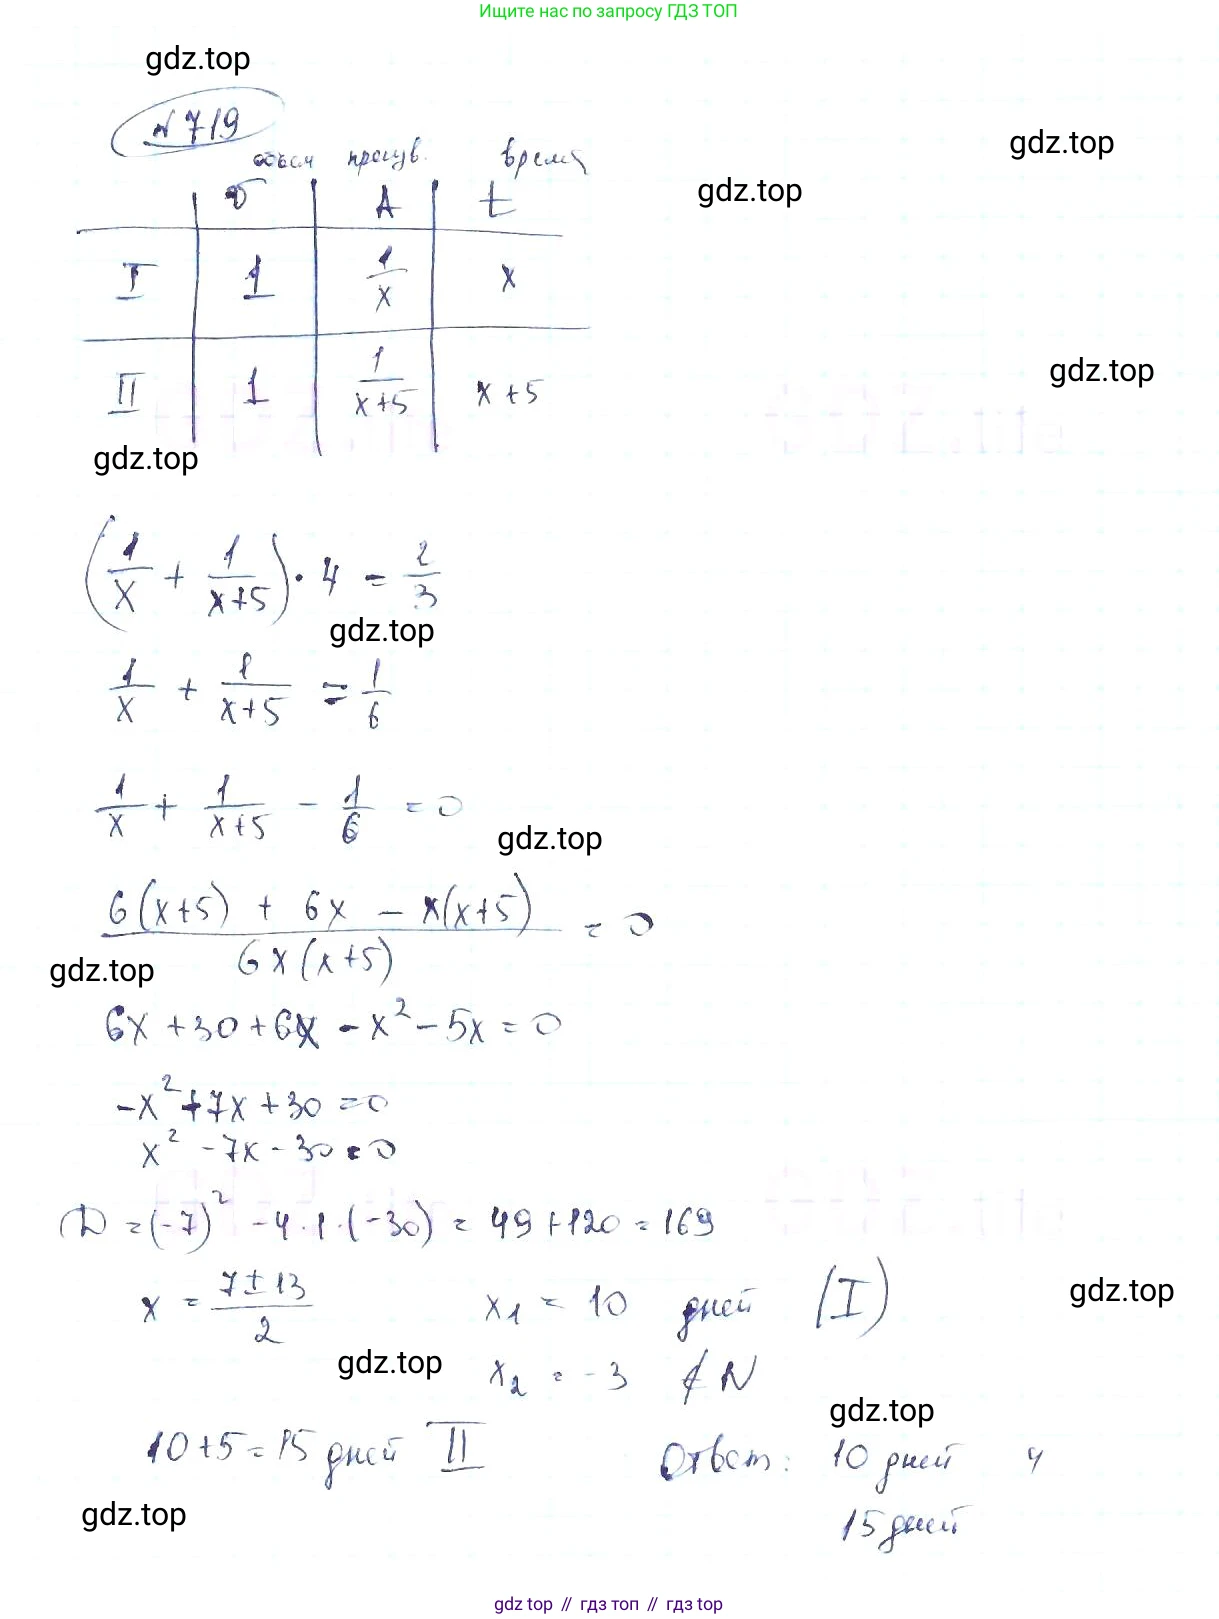 Ищите нас по запросу ГДЗ ТОП
gdz.top
N 719
gdz.top
объем произв. время
gdz.top
v A t
I 1 1/x x
gdz.top
II 1 1/(x+5) x+5
gdz.top
(1/x + 1/(x+5)) · 4 = 2/3
gdz.top
1/x + 1/(x+5) = 1/6
1/x + 1/(x+5) - 1/6 = 0
gdz.top
(6(x+5) + 6x - x(x+5))/(6x(x+5)) = 0
gdz.top
6x + 30 + 6x - x² - 5x = 0
-x² + 7x + 30 = 0
x² - 7x - 30 = 0
D = (-7)² - 4·1·(-30) = 49 + 120 = 169
gdz.top
x = (7 ± 13)/2 x₁ = 10 дней (I)
gdz.top
x₂ = -3 ∉ N
gdz.top
10+5=15 дней II Ответ: 10 дней и
gdz.top
15 дней
gdz.top // гдз топ // гдз.top